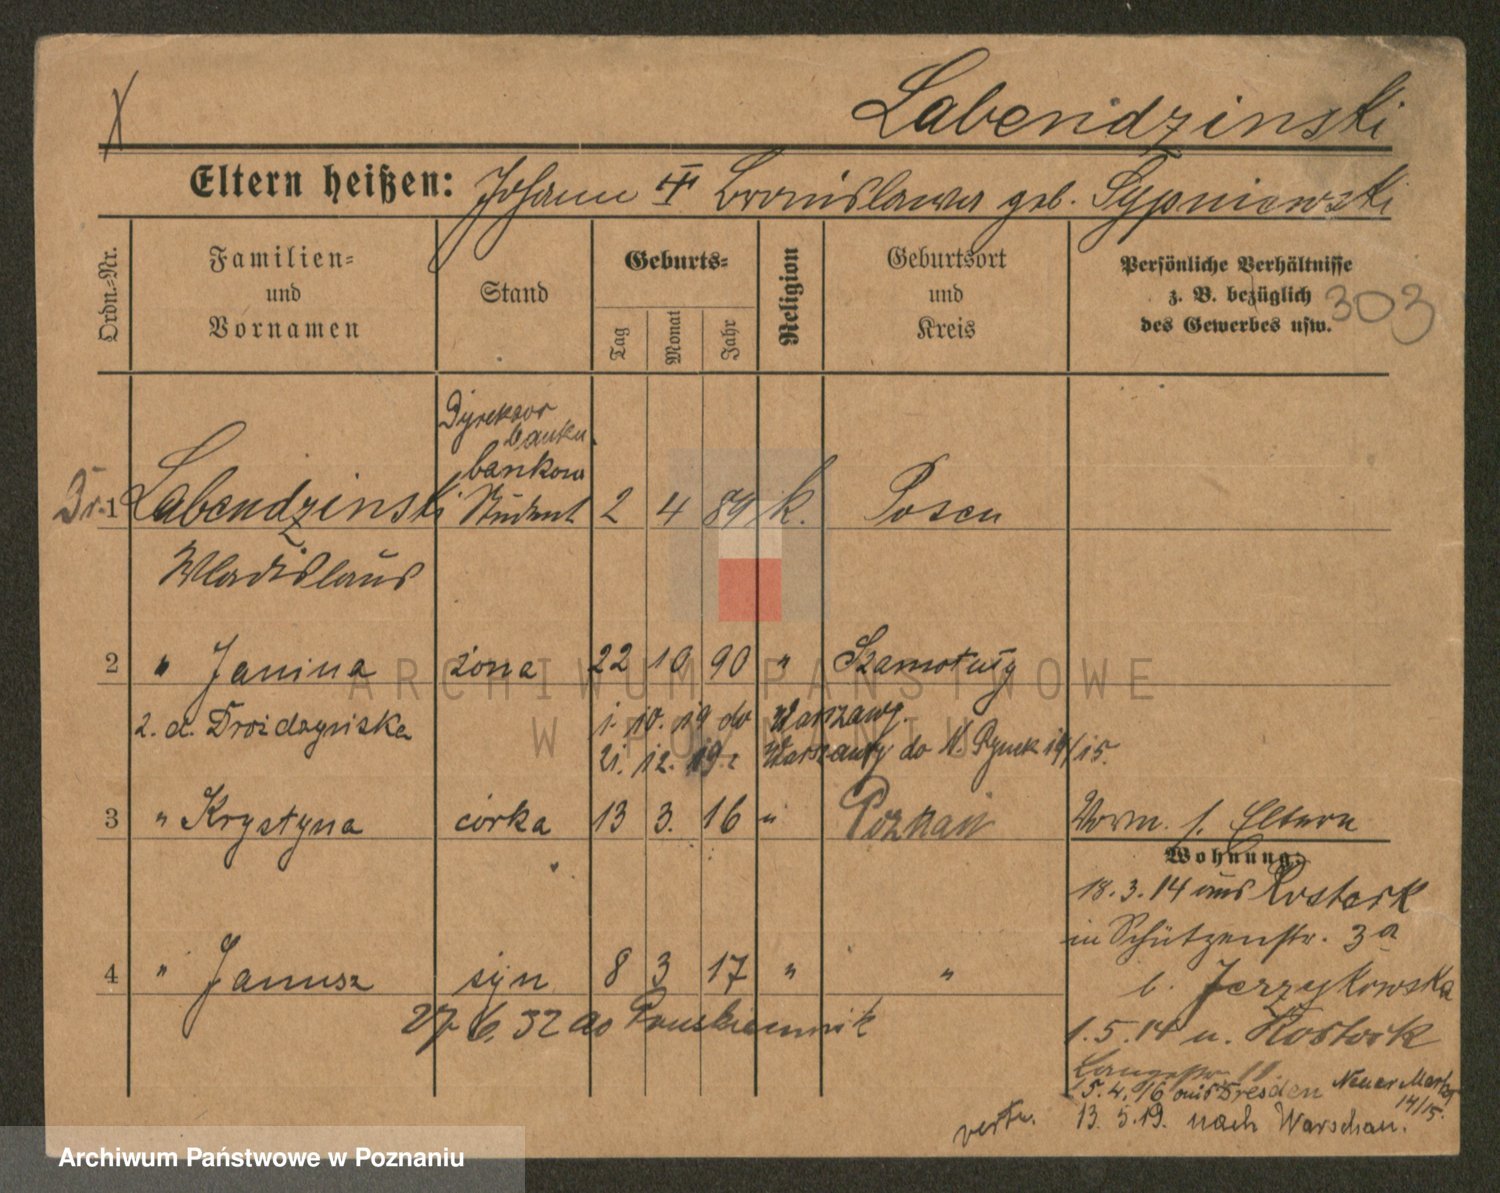 Labendzinski
Eltern heißen: Johann III Bronislawa geb. Sypniewski
Ordn.-Nr.
Familien-
und
Vornamen
Stand
Geburts-
Tag
Monat
Jahr
Religion
Geburtsort
und
Kreis
Persönliche Verhältnisse
z. B. bezüglich
des Gewerbes usw.
303
Dyrektor
banku
Dr. 1 Labendzinski Student 2 4 89 k. Posen
Wladislaus
2 " Janina żona 22 10 90 " Szamotuły
z. d. Drożdzyńska 1. 10. 19 do Warszawy.
21. 12. 19 z Warszawy do N. Rynek 14/15.
3 " Krystyna córka 13 3. 16 " Poznań
Vorm. s. Eltern
Wohnung:
18.3.14 aus Rostock
in Schützenstr. 3a
b. Jerzykowska
4 " Janusz syn 8 3 17 " "
27. 6. 32 do
1.5.14 n. Rostock
15. 4. 16 aus Dresden Neuer Markt
14/15.
13. 5. 19. nach Warschau.
verte.
ARCHIWUM PAŃSTWOWE
W POZNANIU
Archiwum Państwowe w Poznaniu